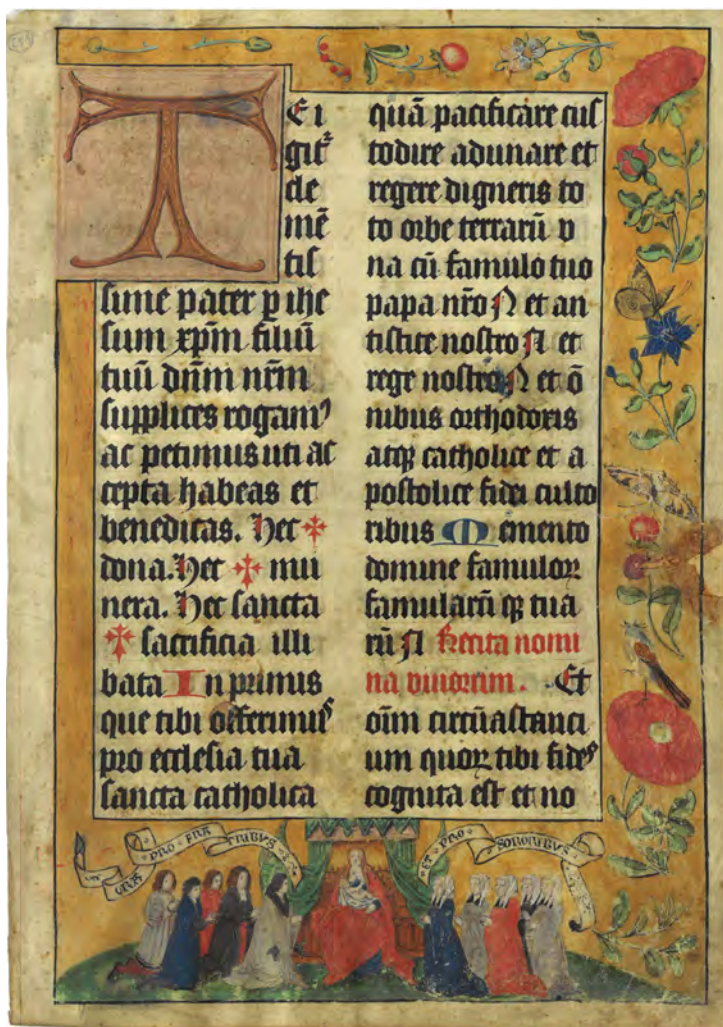 TEi
git᷑
cle
mē
tis
sime pater p̱ ihe
sum xp̄m filiū
tuū dn̄m nr̄m
supplices rogamꝰ
ac petimus uti ac
cepta habeas et
benedicas. Hec ✠
dona. Hec ✠ mu
nera. Hec sancta
✠ sacrificia illi
bata In primis
que tibi offerimus
pro ecclesia tua
sancta catholica
quā pacificare cus
todire adunare et
regere digneris to
to orbe terrarū v
na cū famulo tuo
papa nr̄o N et an
tistite nostro N et
rege nostro N et ō
nibus orthodoxis
atqꝫ catholice et a
postolice fidei culto
ribus Memento
domine famuloꝝ
famularū qꝫ tua
rū N Recita nomi
na vivorum. Et
oīm circūastanci
um quoꝝ tibi fides
cognita est et no
PRO FRA TRIBVS
ET PRO SORORIBVS